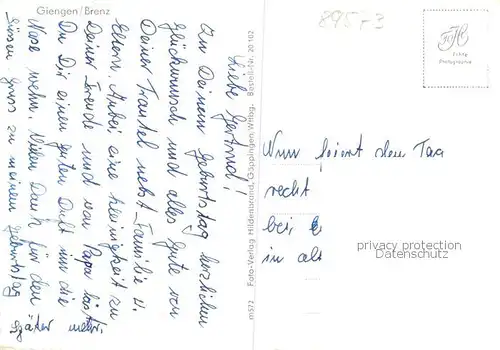 Giengen/Brenz
Liebe Gertrud!
Zu Deinem Geburtstag herzlichen
Glückwunsch und alles Gute von
Deiner Traudel nebst Familie u.
Eltern. Anbei eine Kleinigkeit zu
Deiner Freude und von Papa läßt
Du Dir einen guten Duft um die
Nase wehn. Vielen Dank für den
süssen Gruss zu meinem Geburtstag
Später mehr.
m572 Foto-Verlag Hildenbrand, Göppingen/Wttbg. Bestell-Nr. 20 102
895F3
Echte
Photographie
Nun feiert den Tag
recht
bei
in alt
privacy protection
Datenschutz